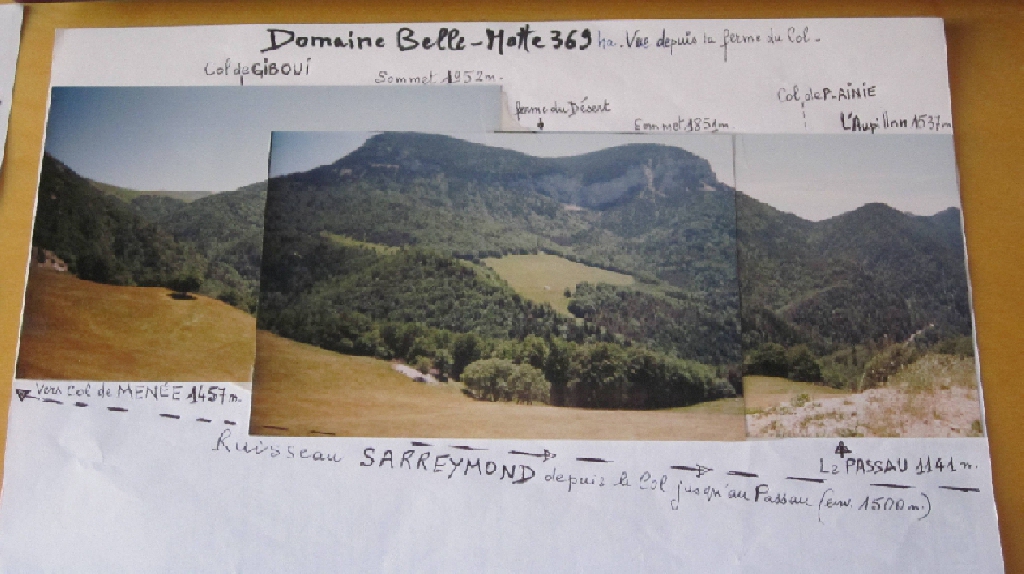 Domaine Belle-Motte 369 ha. Vue depuis la ferme du Col.
Col de GIBOUI
Sommet 1952 m.
ferme du Désert
Sommet 1851m.
Col de P-AINIE
L'Aupillon 1537m
Vers Col de MENÉE 1457 m.
Ruisseau SARREYMOND depuis le Col jusqu'au Passau (env. 1500 m.)
Le PASSAU 1141 m.